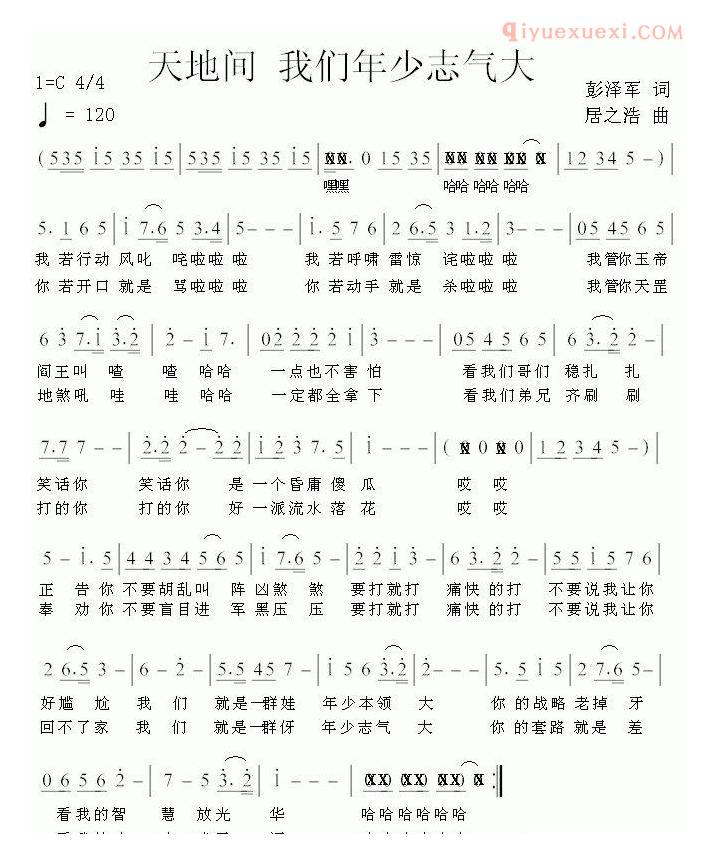 qiyuexuexi.com
天地间 我们年少志气大
1=C 4/4
彭泽军 词
♩ = 120
居之浩 曲
(535 i5 35 i5 | 535 i5 35 i5 | XX. 0 i5 35 | XX XX XX X X | 12 34 5 -) |
嘿嘿 哈哈 哈哈 哈哈
5. 1 6 5 | i 7.6 5 3.4 | 5 - - - | i. 5 7 6 | 2 6.5 3 1.2 | 3 - - - | 05 45 6 5 |
我 若行动 风叱 咤啦啦 啦 我 若呼啸 雷惊 诧啦啦 啦 我管你玉帝
你 若开口 就是 骂啦啦 啦 你 若动手 就是 杀啦啦 啦 我管你天罡
6 3 7.i 3.2 | 2 - i 7. | 02 22 2 i | 3 - - - | 05 4 5 6 5 | 6 3. 2 2 - |
阎王叫 喳 喳 哈哈 一点也不害 怕 看我们哥们 稳扎 扎
地煞吼 哇 哇 哈哈 一定都全拿 下 看我们弟兄 齐刷 刷
7.7 7 - - | 2.2 2 - 2 2 | i 2 3 7. 5 | i - - - | ( X 0 X 0 | 1 2 3 4 5 -) |
笑话你 笑话你 是 一个昏庸 傻 瓜 哎 哎
打的你 打的你 好 一派流水 落 花 哎 哎
5 - i. 5 | 4 4 3 4 5 6 5 | i 7.6 5 - | 2 2 i 3 - | 6 3. 2 2 - | 5 5 i 5 7 6 |
正 告 你 不要胡乱叫 阵 凶煞 煞 要打就打 痛快的 打 不要说我让你
奉 劝 你 不要盲目进 军 黑压 压 要打就打 痛快的 打 不要说我让你
2 6.5 3 - | 6 - 2 - | 5.5 45 7 - | i 5 6 3.2 | 2 - - - | 5. 5 i 5 | 2 7.6 5 - |
好尴 尬 我 们 就是一群娃 年少本领 大 你 的战略 老掉 牙
回不了家 我 们 就是一群伢 年少志气 大 你 的套路 就是 差
0 6 5 6 2 - | 7 - 5 3. 2 | i - - - | (XX) (XX) (XX) X :||
看我的智 慧 放光 华 哈哈哈哈哈哈